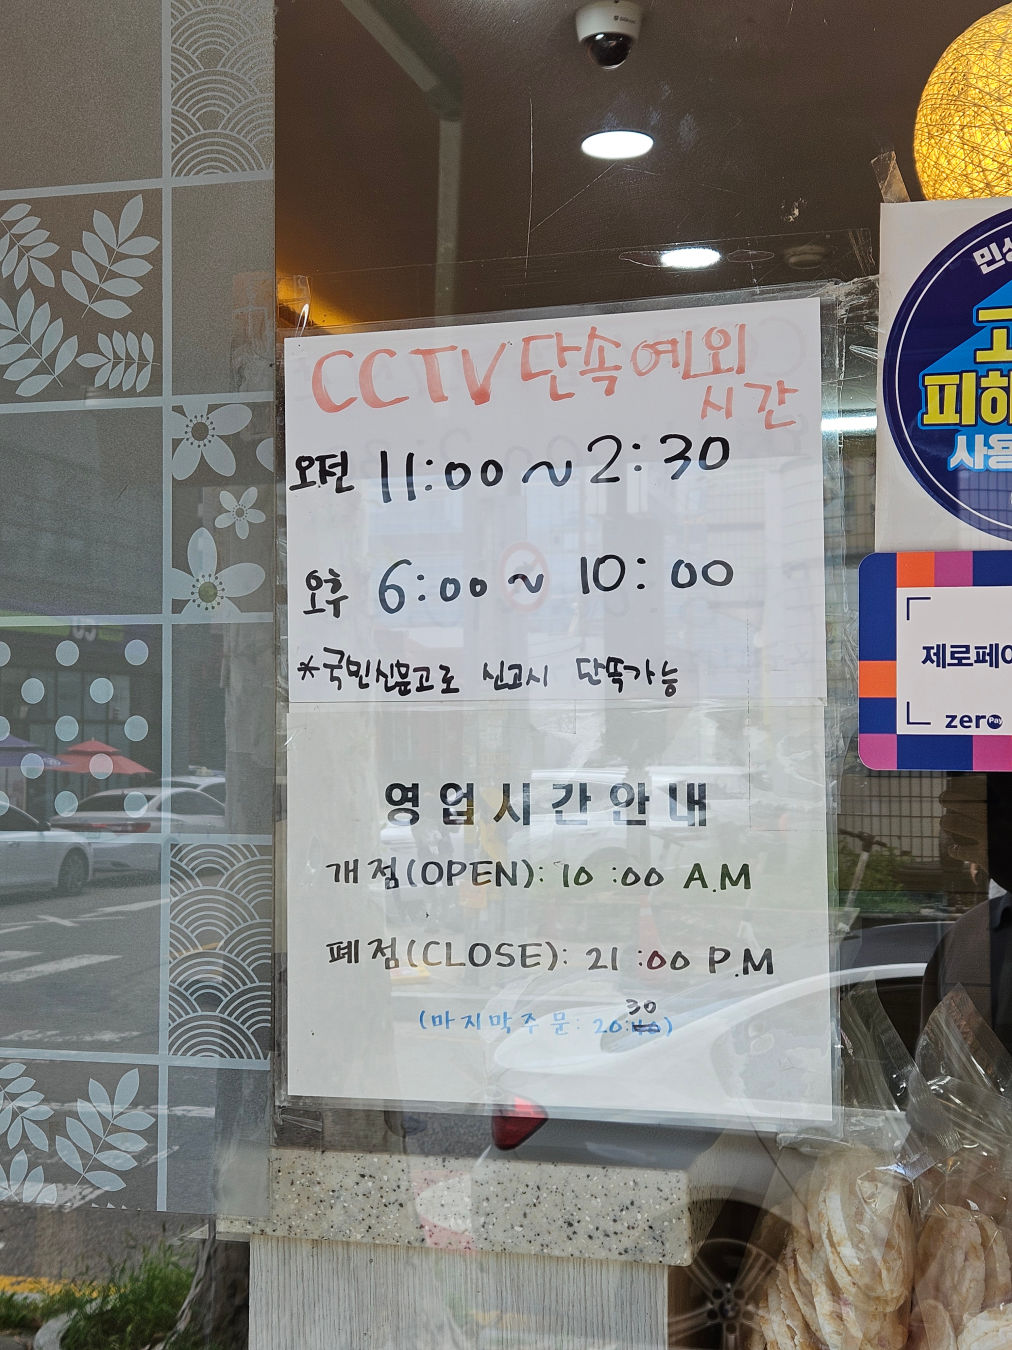 CCTV 단속예외
시간
오전 11:00 ~ 2:30
오후 6:00 ~ 10:00
*국민신문고로 신고시 단뚝가능
영업시간안내
개점(OPEN): 10:00 A.M
폐점(CLOSE): 21:00 P.M
30
(마지막주문: 20:40)
피해
사용
제로페이
zero Pay